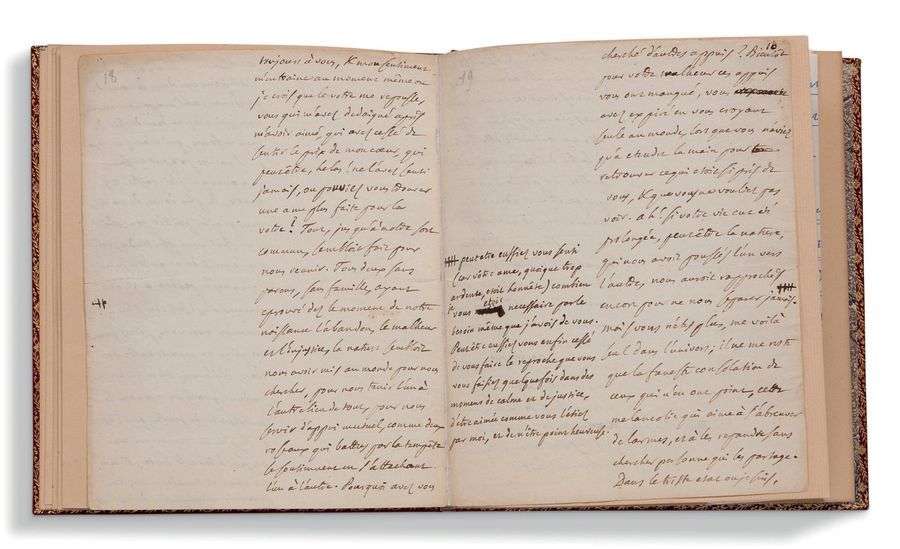 18
toujours à vous, & mon sentiment
m'entraine au moment même où
je crois que le votre me repousse,
vous qui m'avez dedaigné après
m'avoir aimé, qui avez cessé de
sentir le prix de mon coeur, qui
peutêtre, helas! ne l'avez senti
jamais, ou pouviez vous trouver
une ame plus faite pour la
votre? Tout, jusqu'à notre sort
commun, sembloit fait pour
nous reunir. Tous deux sans
parens, sans famille, ayant
eprouvé dès le moment de notre
naissance l'abandon, le malheur
et l'injustice, la nature sembloit
nous avoir mis au monde pour nous
chercher, pour nous tenir l'un à
l'autre lieu de tout, pour nous
servir d'appui mutuel, comme deux
roseaux qui battus par la tempête
se soutiennent en s'attachant
l'un à l'autre. Pourquoi avez vous
19
10
cherché d'autres appuis? Bientôt
pour votre malheur ces appuis
vous ont manqué, vous
avez expiré en vous croyant
seule au monde, lorsque vous n'aviez
qu'à etendre la main pour
retrouver ce qui etoit si près de
vous, & que vous ne vouliez pas
voir. ah! si votre vie eut été
prolongée, peutêtre la nature,
qui nous avoit poussés l'un vers
l'autre, nous auroit rapprochés
encor pour ne nous separer jamais.
mais vous n'êtes plus, me voilà
seul dans l'univers, il ne me reste
que la funeste consolation de
ceux qui n'en ont point, cette
melancolie qui aime à s'abreuver
de larmes, et à les repandre sans
chercher personne qui les partage.
Dans le triste etat où je suis,
peutetre eussiez vous senti
(car votre ame, quoique trop
ardente, etoit honnête) combien
vous etiez necessaire par le
besoin même que j'avois de vous.
Peutêtre eussiez vous enfin cessé
de vous faire le reproche que vous
vous faisiez quelquefois dans des
momens de calme et de justice,
d'être aimée comme vous l'étiez
par moi, et de n'être point heureuse.